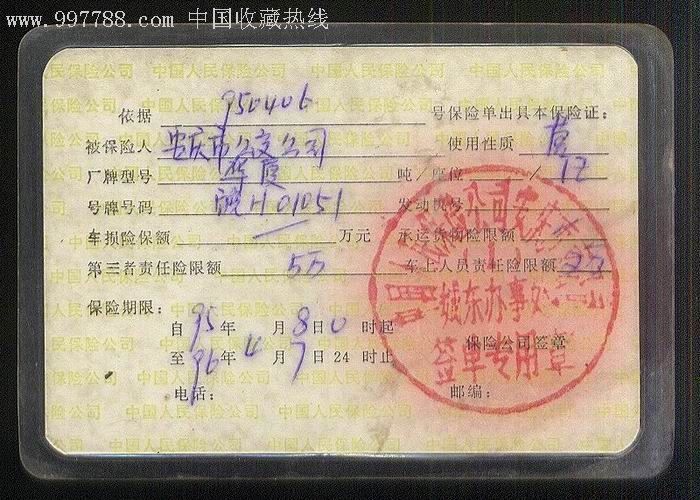 www.997788.com 中国收藏热线
中国人民保险公司 中国人民保险公司 中国人民保险公司
依据 950406 号保险单出具本保险证:
被保险人 安庆市公交公司 使用性质 营
厂牌型号 华夏 吨/座位 / 12
号牌号码 皖H01051 发动机号
车损险保额 — 万元 承运货物险限额
第三者责任险限额 5万 车上人员责任险限额
保险期限:
自95年4月8日0时起
至96年4月7日24时止 保险公司签章
电话: 邮编:
城东办事处
签单专用章